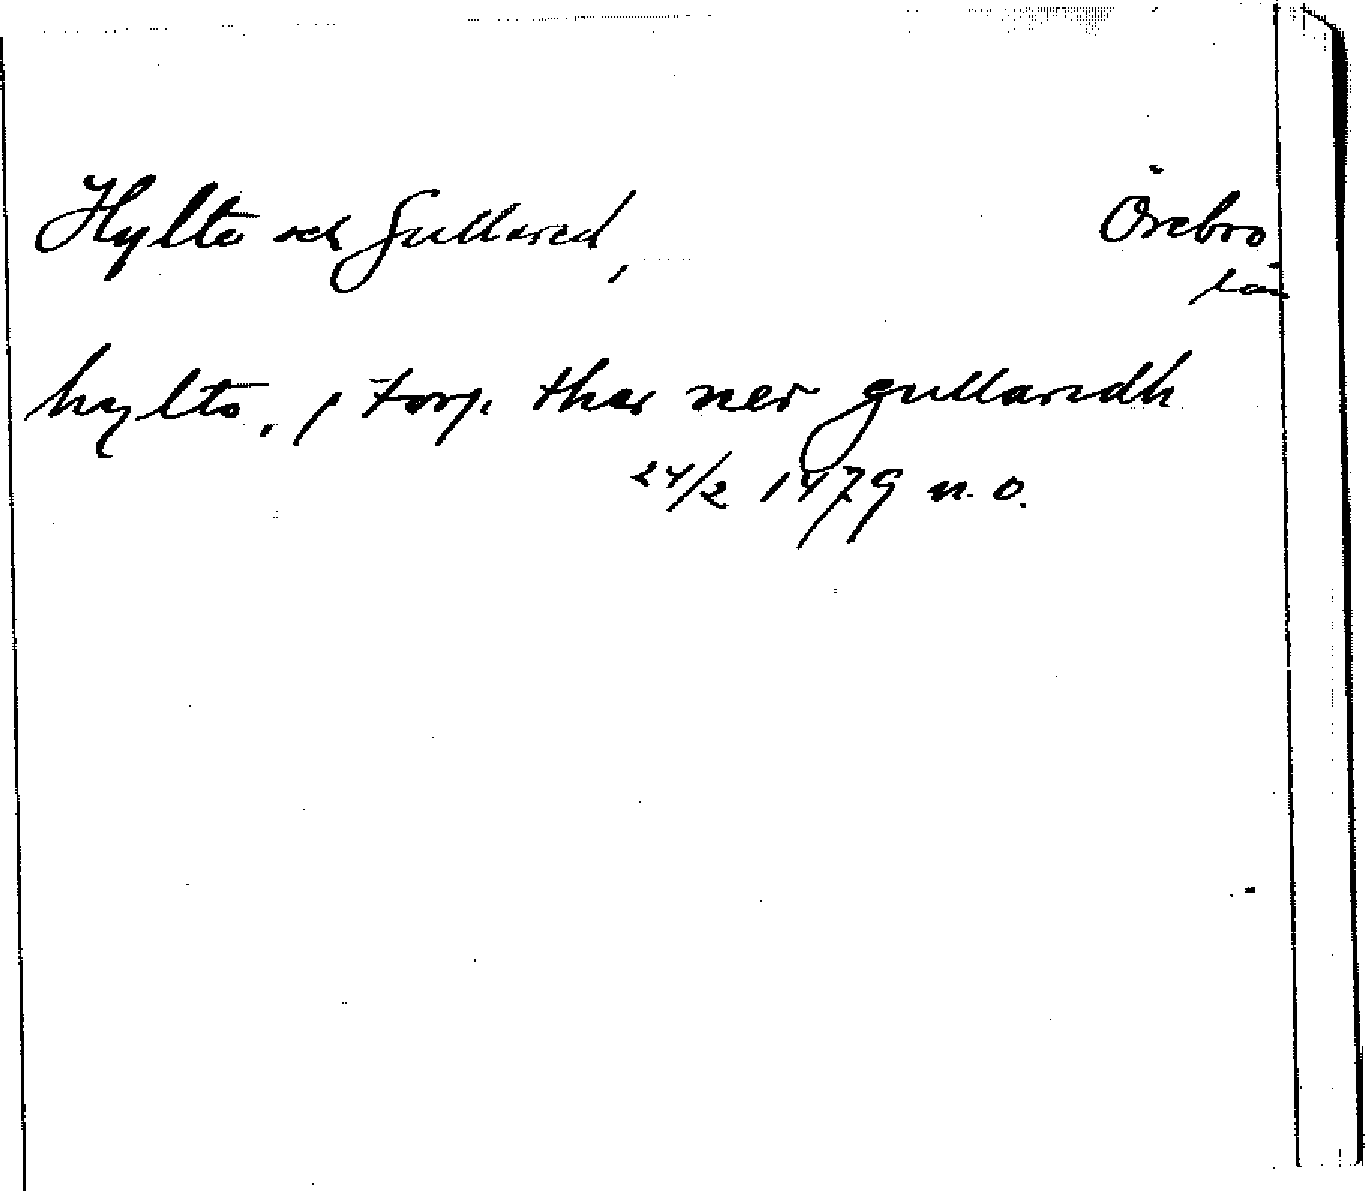 Hylto och Gullared, Örebro
län
hylto, 1 torp thar ner gullaredh
24/2 1479 n. o.